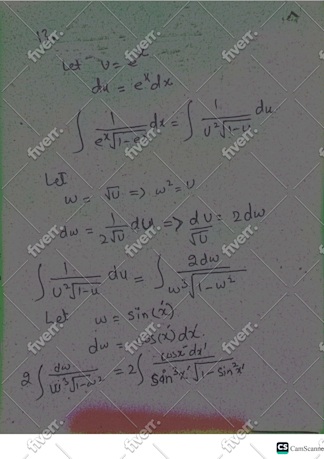 13.
Let U = e^x
du = e^x dx
∫ 1/(e^x √(1-e^x)) dx = ∫ 1/(U²√(1-U)) du
Let
w = √U => w² = U
dw = 1/(2√U) dU => dU/√U = 2dw
∫ 1/(U²√(1-u)) du = ∫ 2dw/(w³√(1-w²))
Let w = sin(x')
dw = cos(x') dx'
2∫ dw/(w³√(1-w²)) = 2∫ cosx' dx'/(sin³x' √(1-sin²x'))
fiverr.
CS CamScanner